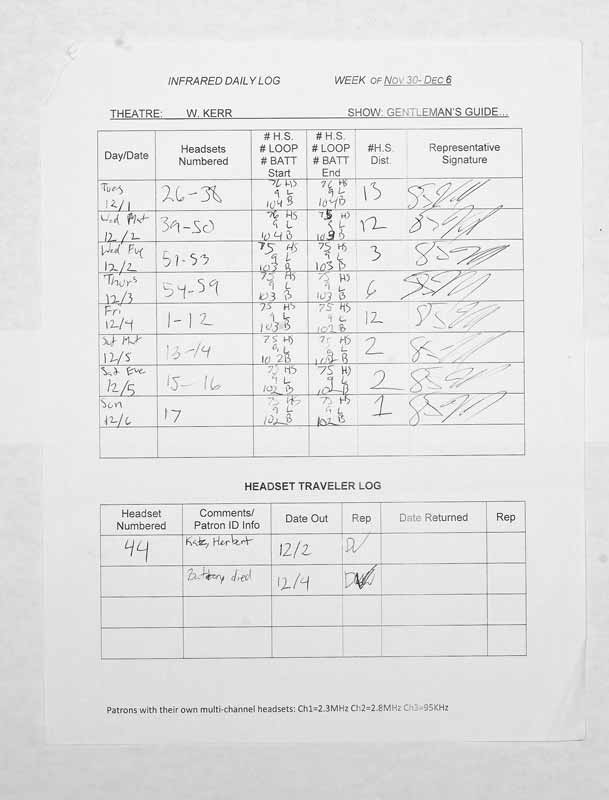 INFRARED DAILY LOG WEEK OF NOV 30- DEC 6
THEATRE: W. KERR SHOW: GENTLEMAN'S GUIDE...
Day/Date Headsets Numbered # H.S. # LOOP # BATT Start # H.S. # LOOP # BATT End #H.S. Dist. Representative Signature
Tues 12/1 26-38 76 HS 9 L 104 B 76 HS 9 L 104 B 13
Wed Mat 12/2 39-50 76 HS 9 L 104 B 75 HS L 103 B 12
Wed Eve 12/2 51-53 75 HS 9 L 103 B 75 HS 9 L 103 B 3
Thurs 12/3 54-59 75 HS 9L 103 B 75 HS 9L 103 B 6
Fri 12/4 1-12 75 HS 9 L 103 B 75 HS 9L 102 B 12
Sat Mat 12/5 13-14 75 HS 9L 102 B 75 HS 9L 102 B 2
Sat Eve 12/5 15-16 75 HS 9 L 102 B 75 HS 9 L 102 B 2
Sun 12/6 17 75 HS 9 L 102 B 75 HS 9L 102 B 1
HEADSET TRAVELER LOG
Headset Numbered Comments/ Patron ID Info Date Out Rep Date Returned Rep
44 Katz, Herbert 12/2
Battery died 12/4
Patrons with their own multi-channel headsets: Ch1=2.3MHz Ch2=2.8MHz Ch3=95KHz